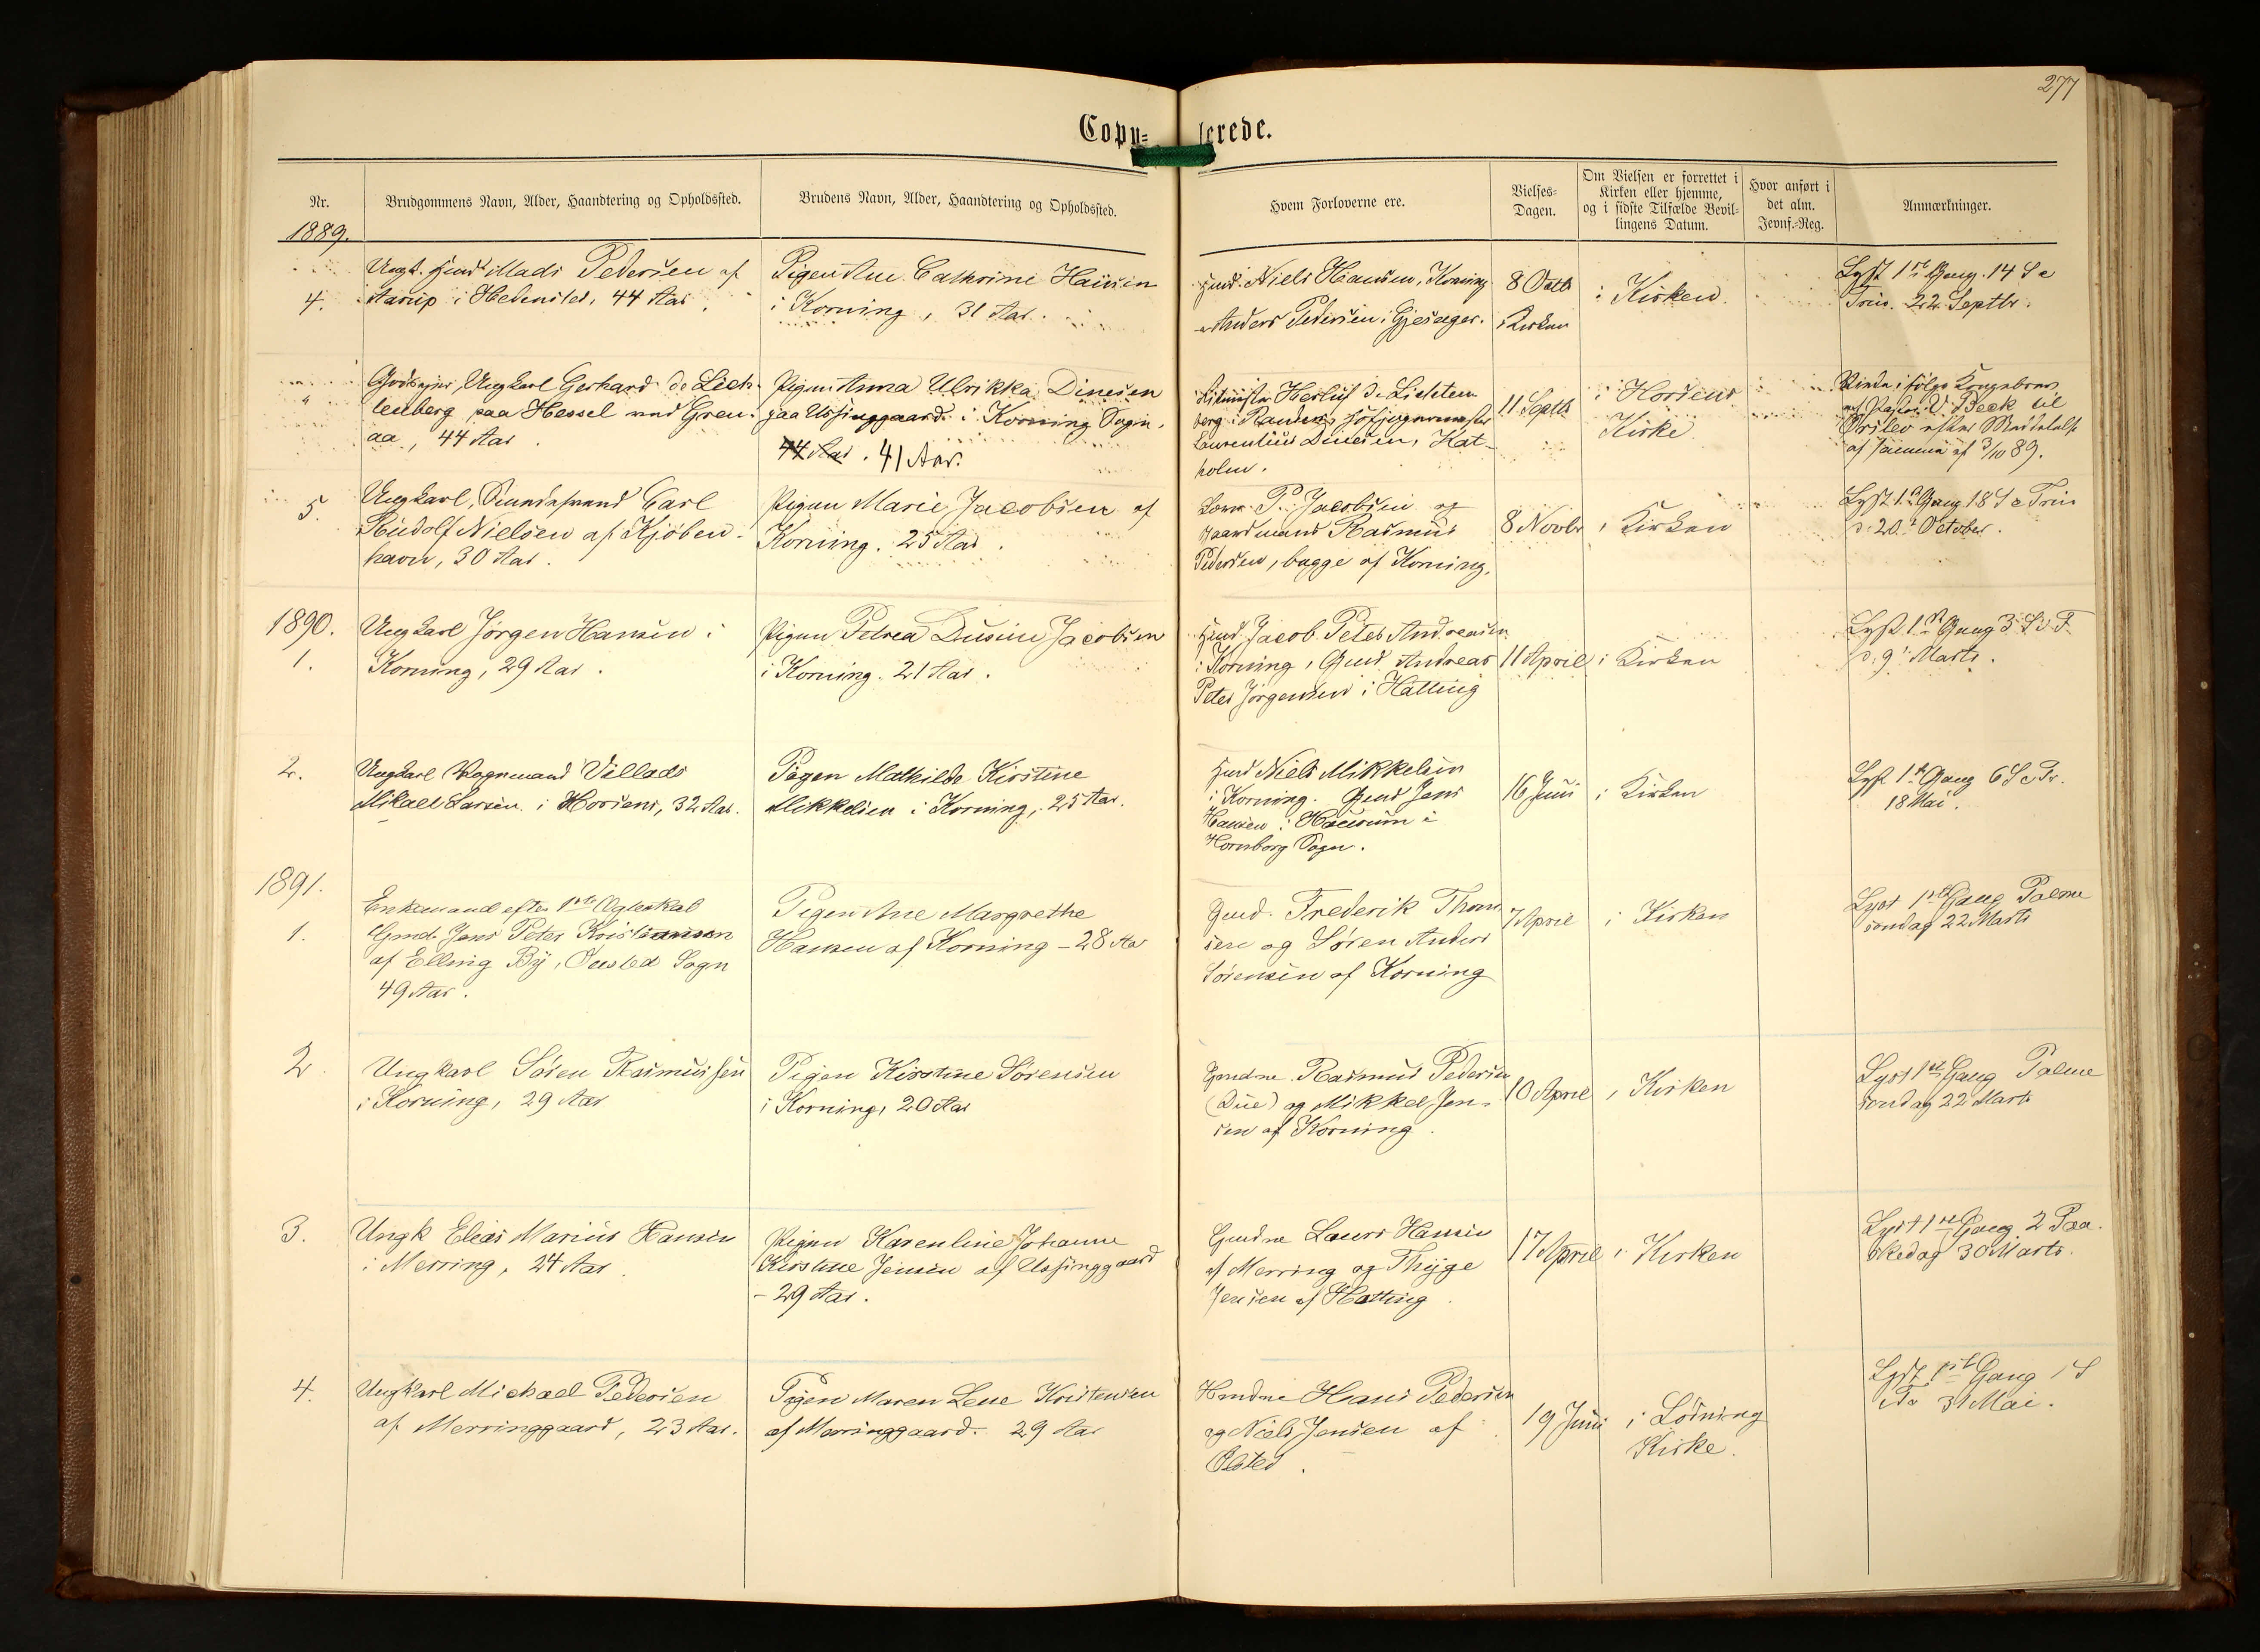 277
Copu=lerede.
Nr.
Brudgommens Navn, Alder, Haandtering og Opholdssted.
Brudens Navn, Alder, Haandtering og Opholdssted.
Hvem Forloverne ere.
Vielses=
Dagen.
Om Vielsen er forrettet i
Kirken eller hjemme,
og i sidste Tilfælde Bevil=
lingens Datum.
Hvor anført i
det alm.
Jevnf.=Reg.
Anmærkninger.
1889.
4.
Ungk. Hmd Mads Pedersen af
Aarup i Hedensted, 44 Aar.
Pigen Ane Cathrine Hansen
i Korning, 31 Aar.
Hmd. Niels Hansen, Korning
Anders Pedersen i Gjesager.
8 Octb
i Kirken
i Kirken.
Lyst 1ste Gang. 14 S e
Trin. 22 Septbr.
"
Godsejer, Ungkarl Gerhard de Lich-
tenberg paa Hessel ved Gren-
aa, 44 Aar.
Pigen Anna Ulrikka Dinesen
paa Ussinggaard i Korning Sogn.
44 Aar. 41 Aar.
Ritmester Herluf de Lichten-
berg i Randers, Hofjægermester
Laurentius Dinesen, Kat-
holm.
11 Septb
i Horsens
Kirke
Viede ifølge Kongebrev
af Pastor V. Beck til
Ørslev efter Meddelelse
af samme af 3/10 89.
5.
Ungkarl, Carl
Rudolf Nielsen af Kjøben-
havn, 30 Aar.
Pigen Marie Jacobsen af
Korning. 25 Aar.
P. Jacobsen og
Gaardmand Rasmus
Pedersen, begge af Korning.
8 Novbr
i Kirken
Lyst 1ste Gang 18 S e Trin
d. 20de October.
1890.
1.
Ungkarl Jørgen Hansen i
Korning, 29 Aar.
Pigen Petrea Jacobsen
i Korning. 21 Aar.
Hmd. Jacob Peter Andreasen
i Korning, Gmd. Andreas
Peter Jørgensen i Hatting
11 April
i Kirken
Lyst 1ste Gang 3 S i F
d. 9de Marts.
2.
Ungkarl Vognmand Villads
Mikael Larsen i Horsens, 32 Aar.
Pigen Mathilde Kirstine
Mikkelsen i Korning, 25 Aar.
Hmd Niels Mikkelsen
i Korning. Gmd Jens
Hansen i
Hornborg Sogn.
16 Juni
i Kirken
Lyst 1ste Gang 6 S e P.
18 Mai.
1891.
1.
Enkemand efter 1ste Ægteskab
Gmd. Jens Peter Kristiansen
af Elling By, Ousted Sogn
49 Aar.
Pigen Ane Margrethe
Hansen af Korning - 28 Aar
Gmd. Frederik Thom-
sen og Søren Anders
Sørensen af Korning
7 April
i Kirken
Lyst 1ste Gang Palme
søndag 22 Marts
2.
Ungkarl Søren Rasmussen
i Korning, 29 Aar
Pigen Kirstine Sørensen
i Korning, 20 Aar
Gmdne. Rasmus Pedersen
(Due) og Mikkel Jen-
sen af Korning.
10 April
i Kirken
Lyst 1ste Gang Palme
søndag 22 Marts
3.
Ungk Elias Marius Hansen
i Merring, 24 Aar
Pigen Karenline Johanne
Kirstine Jensen af Ussinggaard
- 29 Aar.
Gmdne Laurs Hansen
af Merring og Thyge
Jensen af Hatting.
17 April
i Kirken
Lyst 1ste Gang 2 Paa-
skedag 30 Marts.
4.
Ungkarl Michael Pedersen
af Merringgaard, 23 Aar.
Pigen Maren Lene Kristensen
af Merringgaard. 29 Aar
Hmdne Hans Pedersen
og Niels Jensen af
Ølsted.
19 Juni
i Løsning
Kirke.
Lyst 1ste Gang 1 S
e Tr 31 Mai.